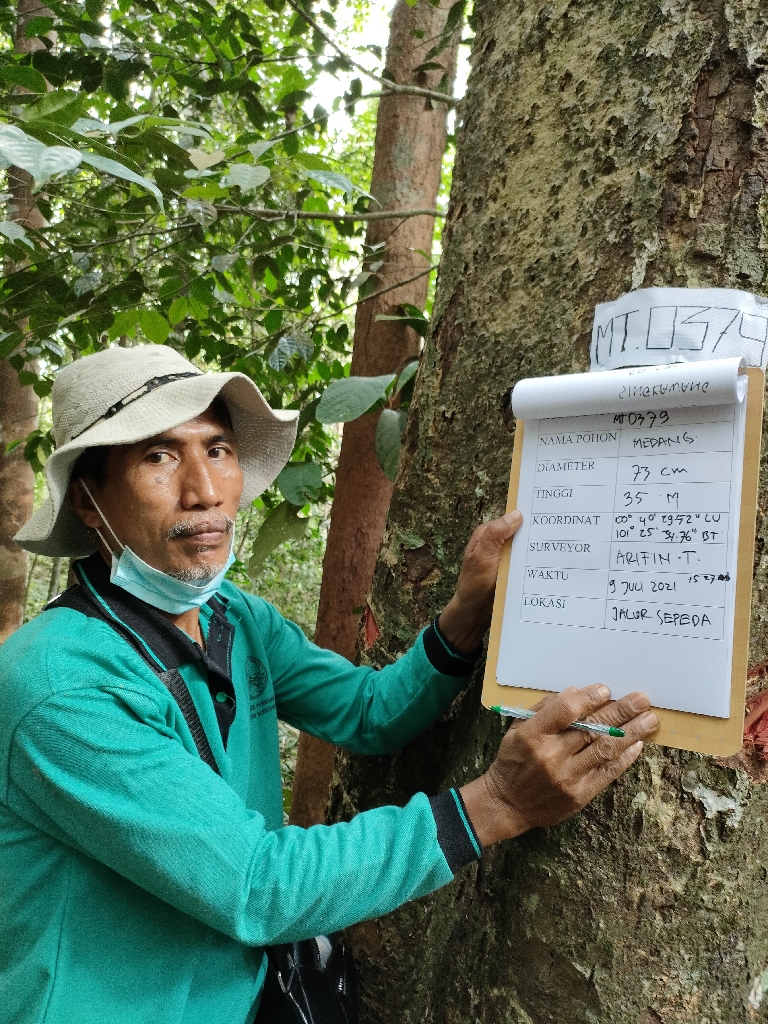 MT.0379
MT 0379
NAMA POHON MEDANG
DIAMETER 73 cm
TINGGI 35 M
KOORDINAT 00° 40' 29.52" LU
101° 25' 34.76" BT
SURVEYOR ARIFIN.T.
WAKTU 9 JULI 2021
LOKASI JALUR SEPEDA